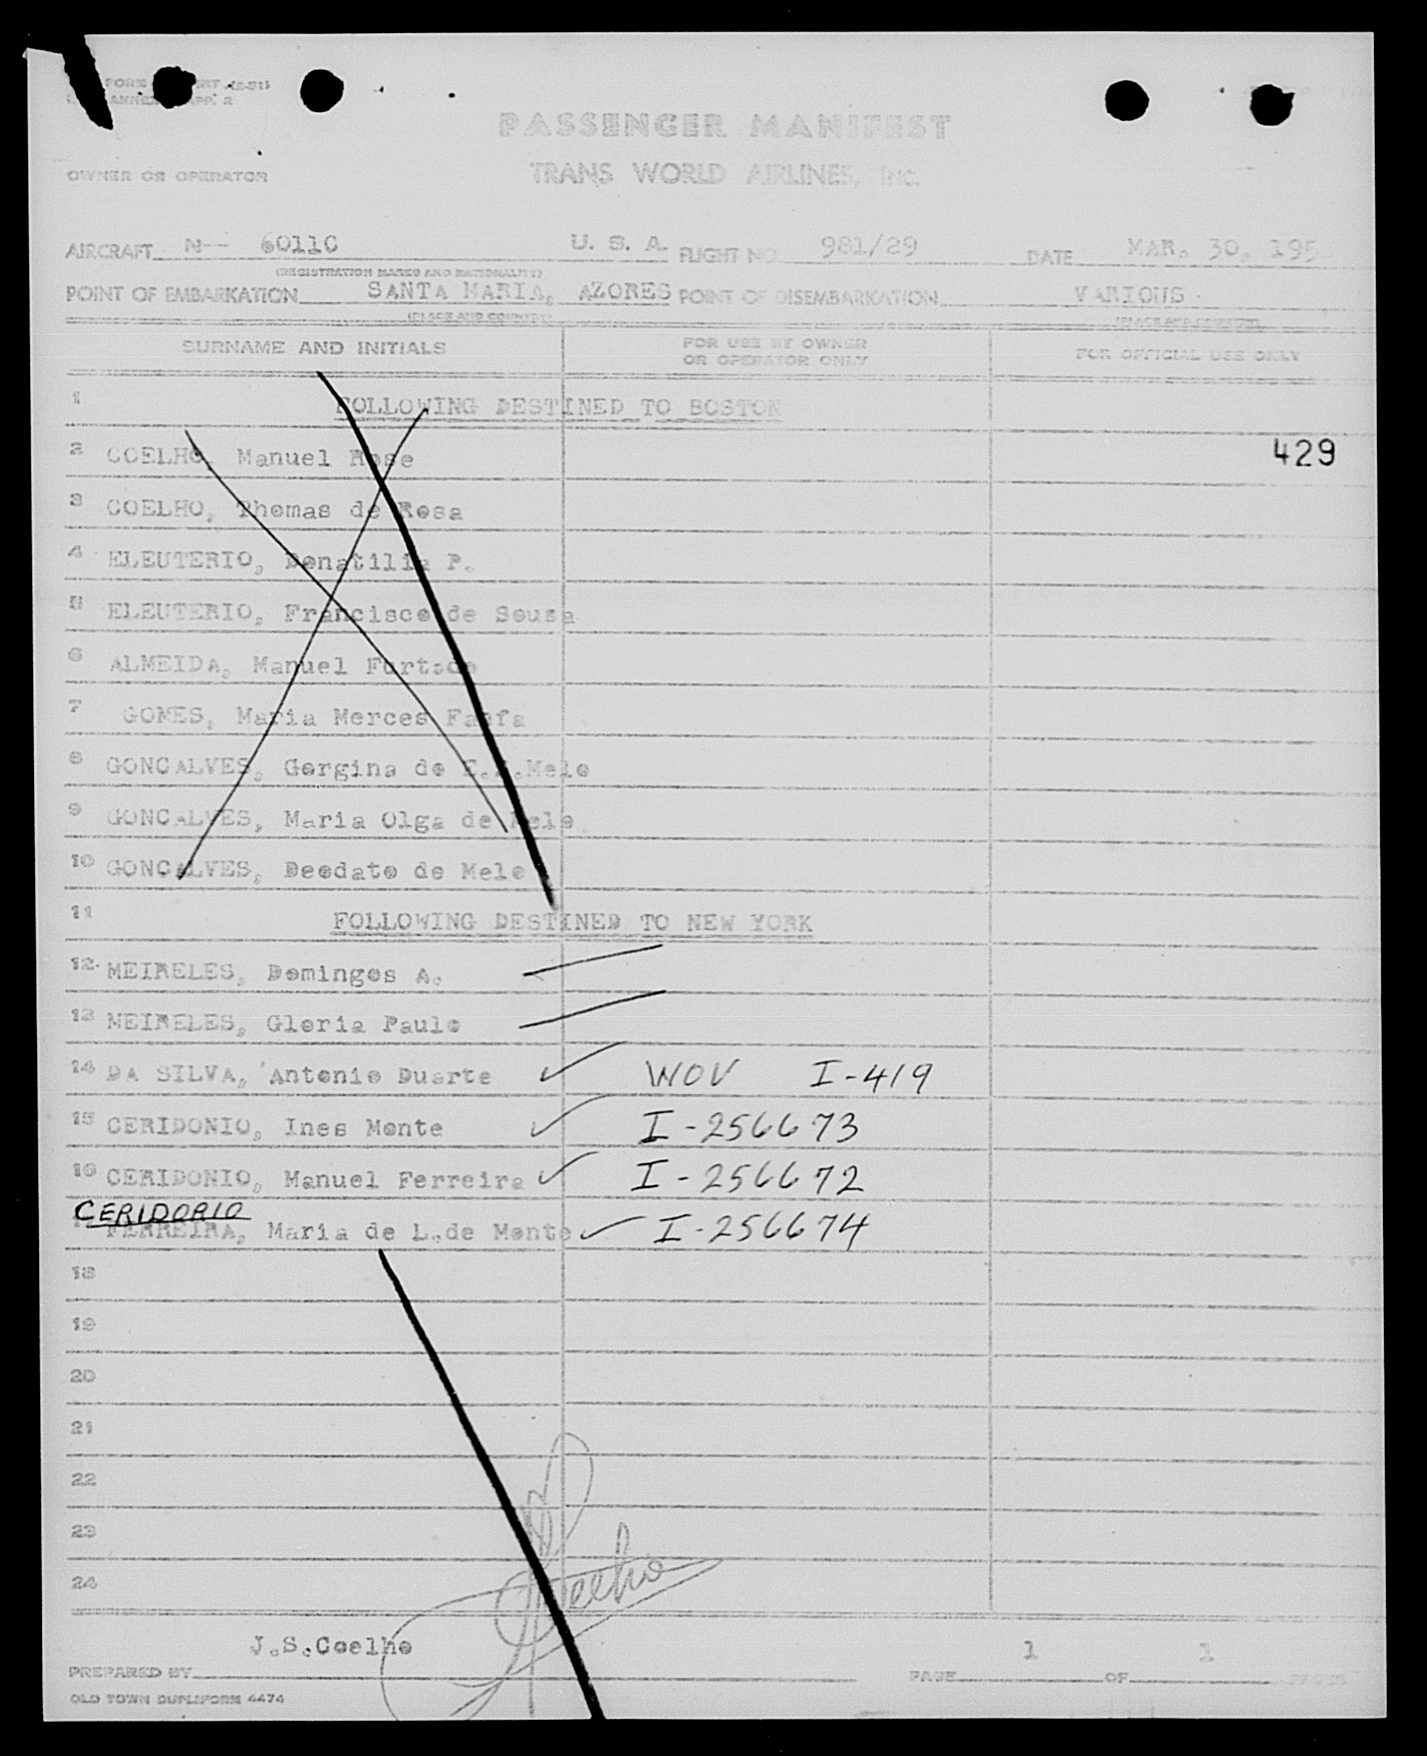 PASSENGER MANIFEST
OWNER OR OPERATOR TRANS WORLD AIRLINES, INC.
AIRCRAFT N-- 6011C U. S. A. FLIGHT NO 981/29 DATE MAR. 30, 195
(REGISTRATION MARKS AND NATIONALITY)
POINT OF EMBARKATION SANTA MARIA, AZORES POINT OF DISEMBARKATION VARIOUS
(PLACE AND COUNTRY)
SURNAME AND INITIALS FOR USE BY OWNER OR OPERATOR ONLY FOR OFFICIAL USE ONLY
1 FOLLOWING DESTINED TO BOSTON
2 COELHO, Manuel Rose 429
3 COELHO, Thomas de Rosa
4 ELEUTERIO, Donatilia P.
5 ELEUTERIO, Francisco de Sousa
6 ALMEIDA, Manuel Furtado
7 GOMES, Maria Merces
8 GONCALVES, Gergina de Melo
9 GONCALVES, Maria Olga de Melo
10 GONCALVES, Deodato de Melo
11 FOLLOWING DESTINED TO NEW YORK
12 MEIRELES, Domingos A.
13 MEIRELES, Gloria Paulo
14 DA SILVA, Antonio Duarte WOV I-419
15 CERIDONIO, Ines Monte I-256673
16 CERIDONIO, Manuel Ferreira I-256672
CERIDORIO
FERREIRA, Maria de L.de Monte I-256674
18
19
20
21
22
23
24
J.S.Coelho
Coelho
PREPARED BY PAGE 1 OF 1
OLD TOWN DUPLIFORM 4474